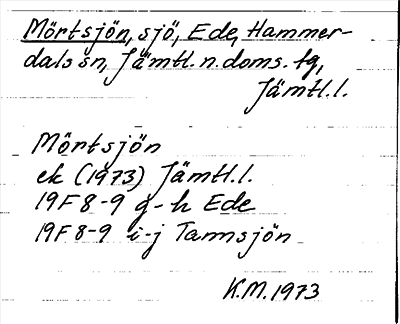 Mörtsjön, sjö, Ede, Hammer-
dals sn, Jämtl. n. doms. tg,
Jämtl.l.
Mörtsjön
ek (1973) Jämtl.l.
19F 8-9 g-h Ede
19F 8-9 i-j Tannsjön
K.M. 1973